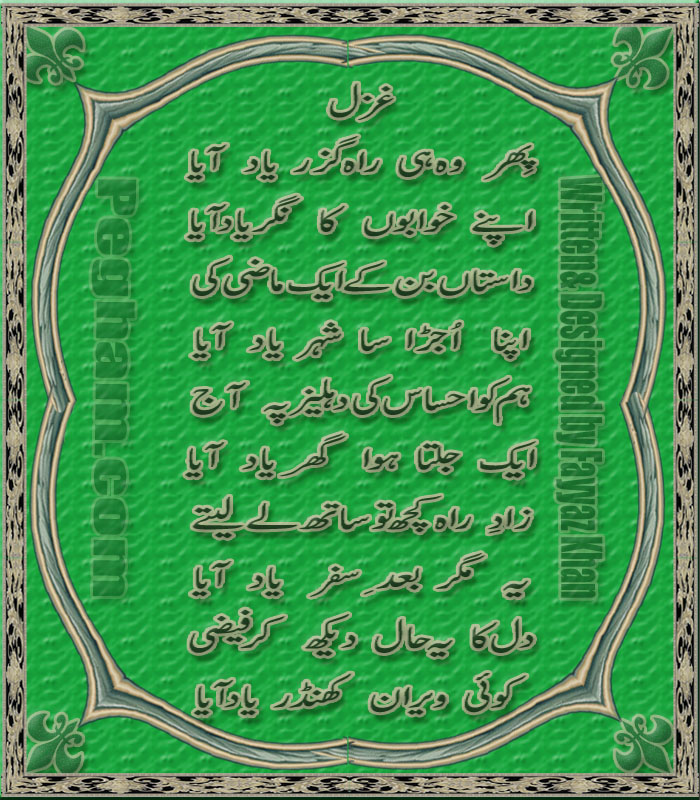 غزل
پھر وہ ہی راہ گزر یاد آیا
اپنے خوابوں کا نگر یاد آیا
داستاں بن کے ایک ماضی کی
اپنا اُجڑا سا شہر یاد آیا
ہم کو احساس کی دہلیز پہ آج
ایک جلتا ہوا گھر یاد آیا
زادِ راہ کچھ تو ساتھ لے لیتے
یہ مگر بعدِ سفر یاد آیا
دل کا یہ حال دیکھ کر فیضی
کوئی ویران کھنڈر یاد آیا
Written & Designed by Fayyaz Khan
Pegham.com